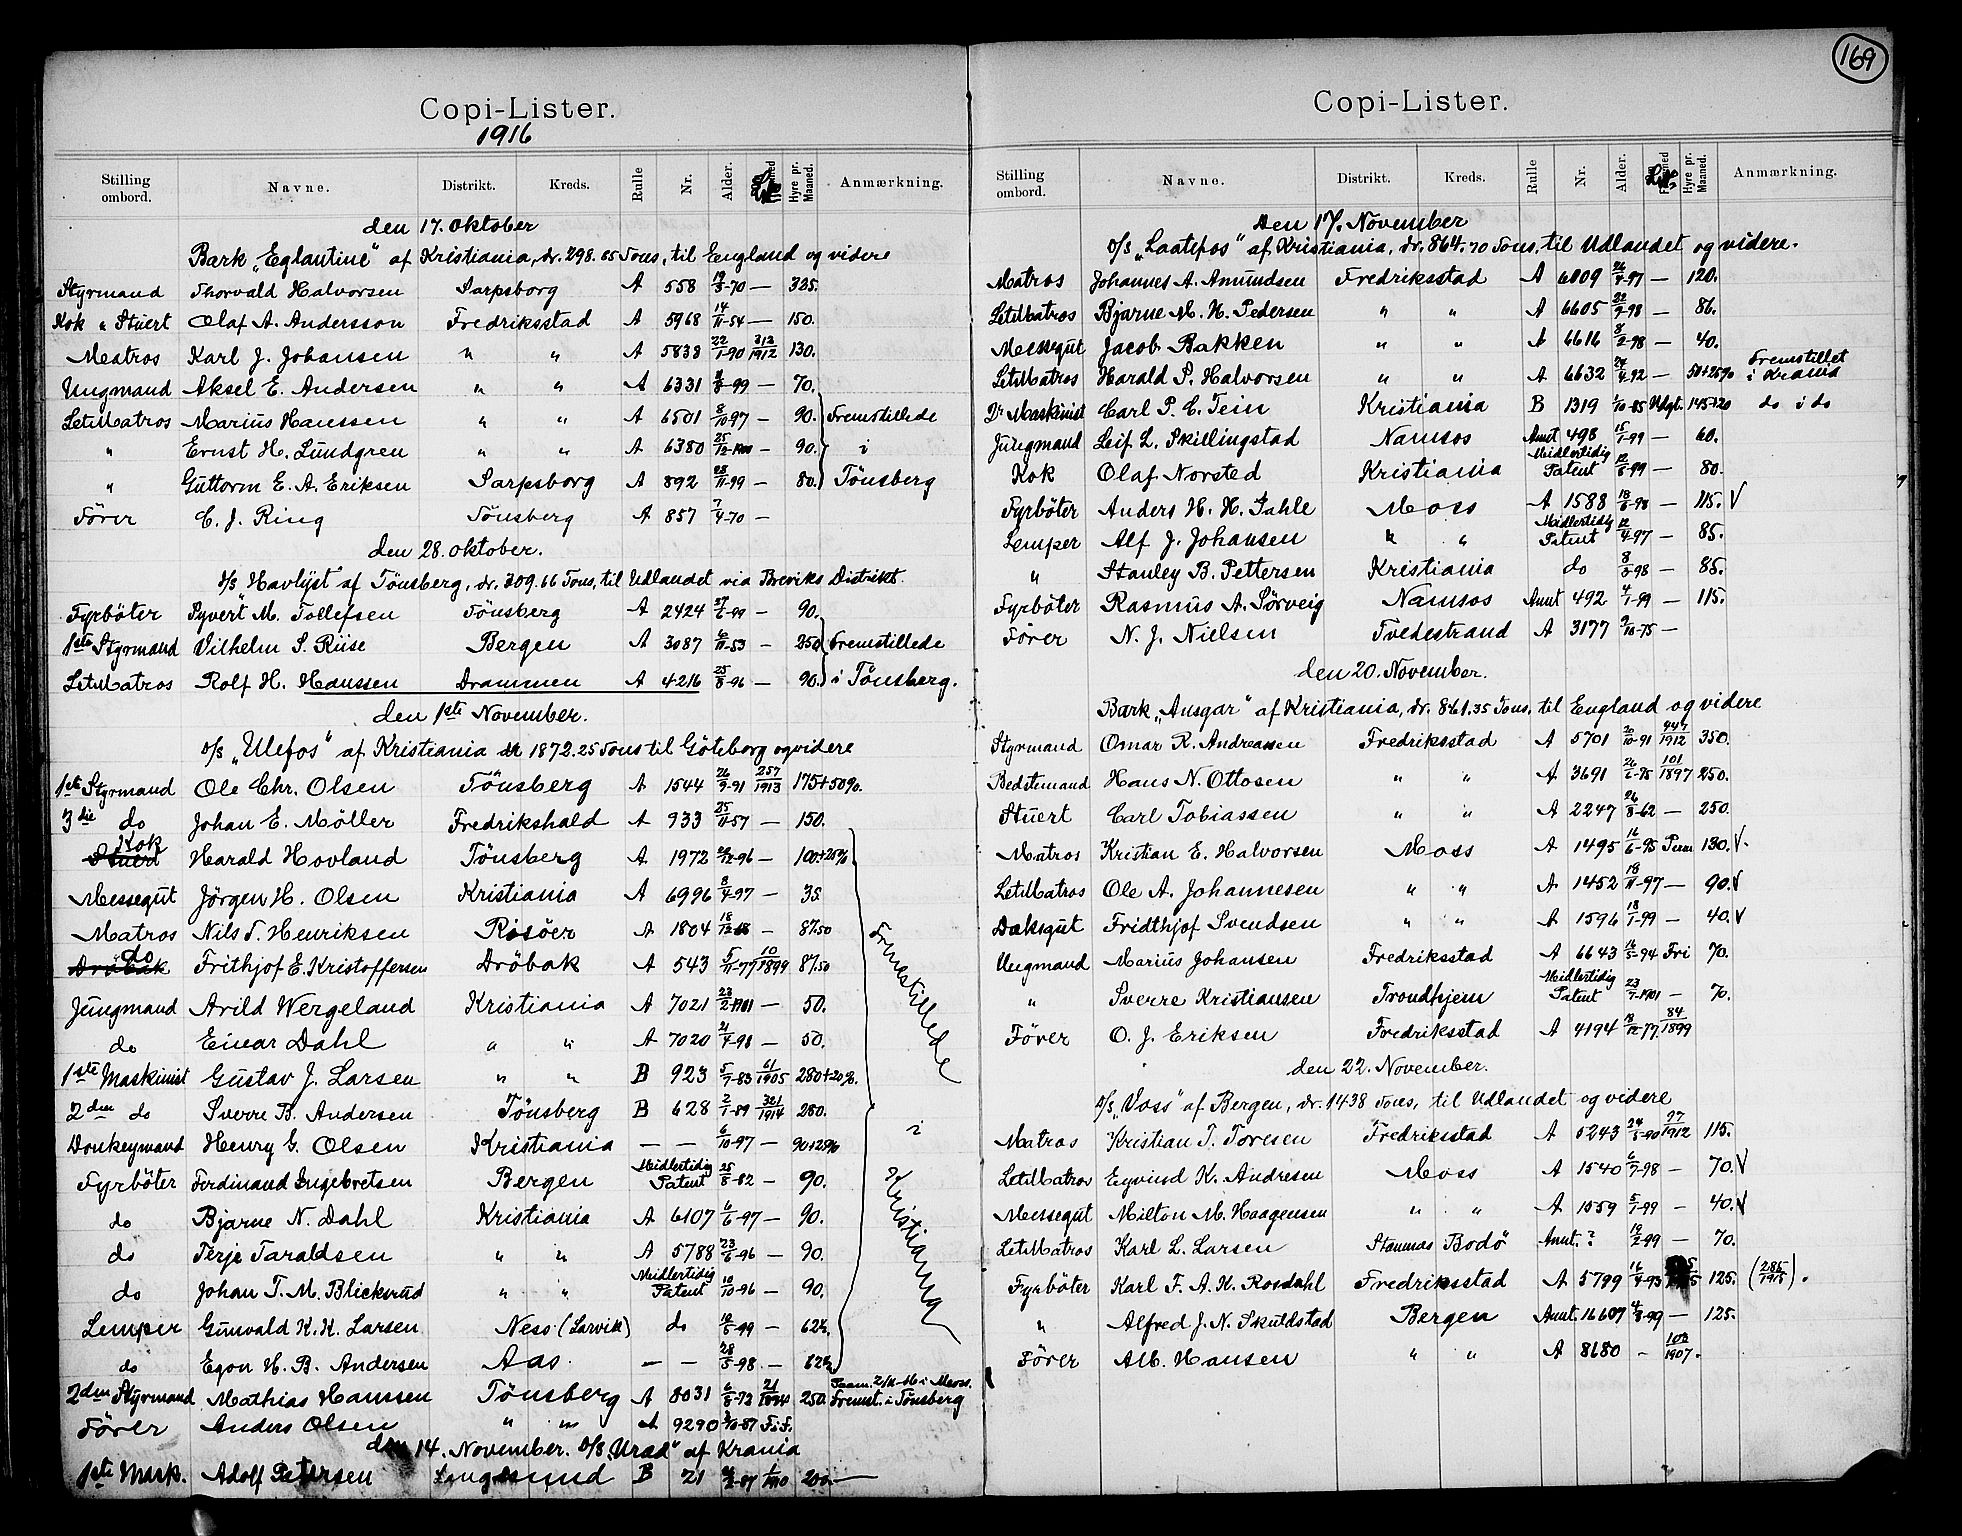 169
Copi-Lister.
1916
Stilling ombord. Navne. Distrikt. Kreds. Rulle Nr. Alder. Hyre pr. Maaned. Anmærkning.
den 17. Oktober
Bark „Eglantine" af Kristiania, dr. 298.85 Tons, til England og videre
Styrmand Thorvald Halvorsen Sarpsborg A 558 –70 — 325.
Kok & Stuert Olaf A. Andersson Fredriksstad A 5968 14/11-54 — 150.
Matros Karl J. Johansen " " A 5838 22/1-90 313/1912 130.
Ungmand Aksel E. Andersen " " A 6331 –99 — 70.
LetMatros Marius Hanssen " " A 6501 8/10-97 — 90. Fremstillede
" Ernst H. Lundgren " " A 6380 25/12-1900 — 90. i
" Guttorm E. A. Eriksen Sarpsborg A 892 25/11-99 — 80. Tönsberg
Förer C. J. Ring Tönsberg A 857 7/4-70 —
den 28. Oktober.
D/S „Havlyst af Tönsberg, dr. 309.66 Tons, til Udlandet via Breviks Distrikt.
Fyrböter Syvert M. Tollefsen Tönsberg A 2424 27/6-99 — 90.
1ste Styrmand Vilhelm S. Riise Bergen A 3087 6/11-53 — 250 Fremstillede
LetMatros Rolf H. Hanssen Drammen A 4216 25/8-96 — 90. i Tönsberg.
den 1ste November.
D/S „Ulefos" af Kristiania dr 1872.25 Tons til Göteborg og videre
1ste Styrmand Ole Chr. Olsen Tönsberg A 1544 26/9-91 257/1913 175+50%.
3die do Johan E. Möller Fredrikshald A 933 25/11-57 — 150.
Kok
Stuert Harald Hovland Tönsberg A 1972 –96 — 100+25%
Messegut Jörgen H. Olsen Kristiania A 6996 8/4-97 — 35
Matros Nils T. Henriksen Risöer A 1804 18/12- — 87.50
do
Dröbak Frithjof E. Kristoffersen Dröbak A 543 5/11-77 10/1899 87.50
Jungmand Arild Wergeland Kristiania A 7021 23/2-1901 — 50. Fremstillede
do Einar Dahl " " A 7020 21/4-98 — 50.
1ste Maskinist Gustav J. Larsen " " B 923 5/7-83 61/1905 280+20%.
2den do Sverre B. Andersen Tönsberg B 628 2/1-89 321/1914 280.
Donkeymand Henry G. Olsen Kristiania — — 6/10-97 — 90+25% i
Fyrböter Ferdinand Ingebretsen Bergen Midlertidig Patent 25/8-82 — 90.
do Bjarne N. Dahl Kristiania A 6107 6/6-97 — 90.
do Terje Taraldsen " " A 5788 23/6-96 — 90. Kristiania
do Johan T. M. Blicksrud " " Midlertidig Patent 10/10-96 — 90.
Lemper Gunvald K. K. Larsen Ness (Larvik) do 10/5-99 — 62½.
do Egon H. B. Andersen Aas. — — 28/5-98. — 62½
2den Styrmand Mathias Hanssen Tönsberg A 8031 6/8-73 250. Fremst. i Tönsberg
Förer Anders Olsen " " A 9290 –87 F.f.
den 14. November. D/S „Urad" af Krania
1ste Mask. Adolf Petersen Langesund B 21 –87 200.—
Copi-Lister.
Stilling ombord. Navne. Distrikt. Kreds. Rulle Nr. Alder. Hyre pr. Maaned. Anmærkning.
Den 17. November
D/S „Laatefos" af Kristiania, dr. 864.70 Tons, til Udlandet og videre.
Matros Johannes A. Amundsen Fredriksstad A 6009 26/4-97 — 120.
LetMatros Bjarne M. H. Pedersen " " A 6605 22/9-98 — 86.
Messegut Jacob Bakken " " A 6616 8/2-98 — 40.
LetMatros Harald P. Halvorsen " " A 6632 –92 — 50+25% Fremstillet i Krania
2' Maskinist Carl P. C. Tein Kristiania B 1319 1/10-85 Udgt. 145+20 do i do
Jungmand Leif L. Skillingstad Namsos Anmt 498 15/1-99 — 60.
Kok Olaf Norsted Kristiania Midlertidig Patent 12/8-99 — 80.
Fyrböter Anders H. H. Jahle Moss A 1588 18/5-98 — 115. V
Lemper Alf J. Johansen " " Midlertidig Patent 12/4-97 — 85.
" Stanley B. Pettersen Kristiania do 8/8-98 — 85.
Fyrböter Rasmus A. Sörveig Namsos Anmt 492 –99 — 115.
Förer N. J. Nielsen Tvedestrand A 3177 9/10-75 —
den 20. November.
Bark „Ansgar" af Kristiania, dr. 861.35 Tons, til England og videre
Styrmand Omar R. Andreassen Fredriksstad A 5701 20/10-91 447/1912 350.
Bedstemand Hans N. Ottosen " " A 3691 26/6-75 101/1897 250.
Stuert Carl Tobiassen " " A 2247 26/8-62 — 250.
Matros Kristian E. Halvorsen Moss A 1495 16/6-95 Perm 130. V.
LetMatros Ole A. Johannesen " " A 1452 18/11-97 — 90. V
Dæksgut Fridthjof Svendsen " " A 1596 18/1-99 — 40. V
Ungmand Marius Johansen Fredriksstad A 6643 16/5-94 Fri 70.
" Sverre Kristiansen Trondhjem Midlertidig Patent 23/7-1901 — 70.
Förer O. J. Eriksen Fredriksstad A 4194 –77 84/1899
den 22. November.
D/S „Voss" af Bergen, dr. 1438 Tons, til Udlandet og videre
Matros Kristian T. Toresen Fredriksstad A 5243 24/5-90 77/1912 115.
LetMatros Eyvind K. Andresen Moss A 1540 6/7-98 — 70. V
Messegut Milton M. Haagensen " " A 1559 5/1-99 — 40. V
LetMatros Karl L. Larsen Stamnas Bodö Anmt. ? 19/2-99 — 70.
Fyrböter Karl F. A. K. Rosdahl Fredriksstad A 5799 16/4-93 125. (285/1915).
" Alfred J. N. Skuldstad Bergen Anmt. 16607 –99 — 125.
Förer Alb. Hansen " " A 8680 — 102/1907.